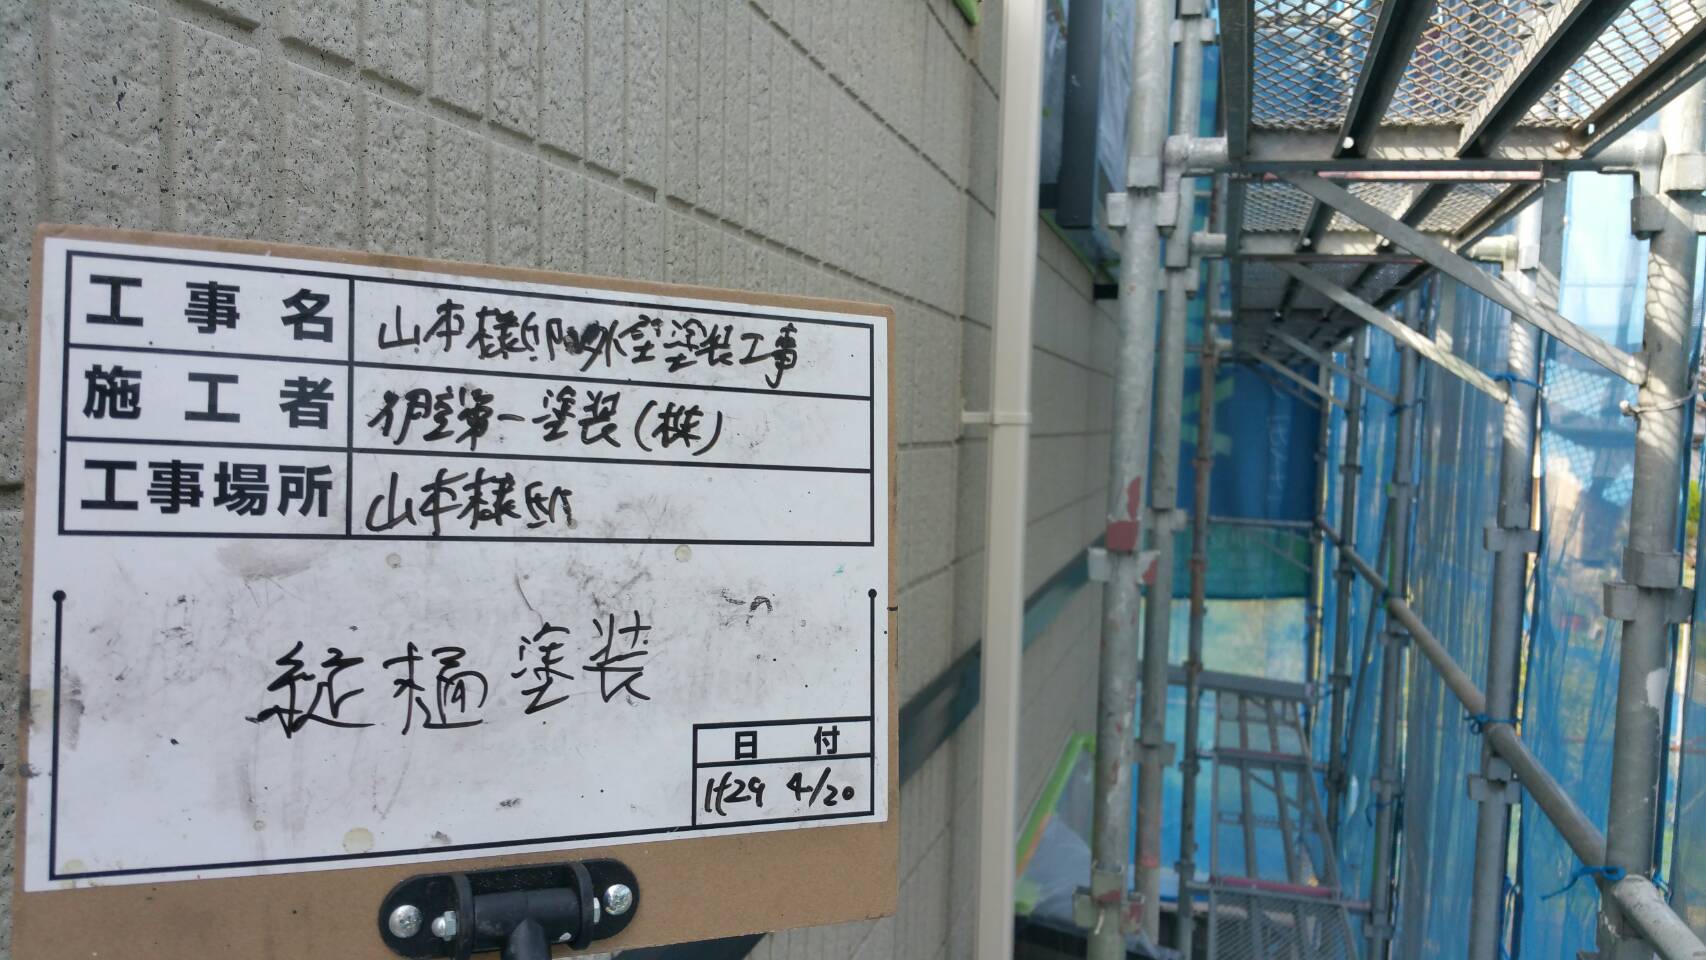 工事名 山本様邸外壁塗装工事
施工者 伊勢第一塗装(株)
工事場所 山本様邸
縦樋塗装
日付
H29 4/20